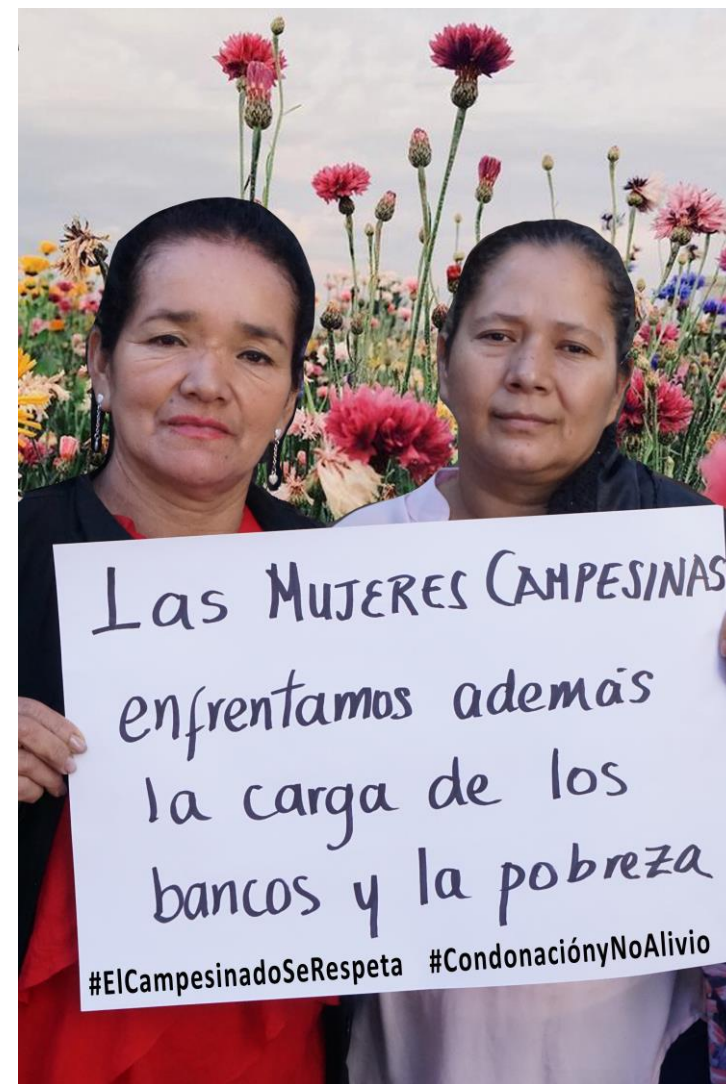 Las MUJERES CAMPESINAS
enfrentamos además
la carga de los
bancos y la pobreza
#ElCampesinadoSeRespeta #CondonaciónyNoAlivio